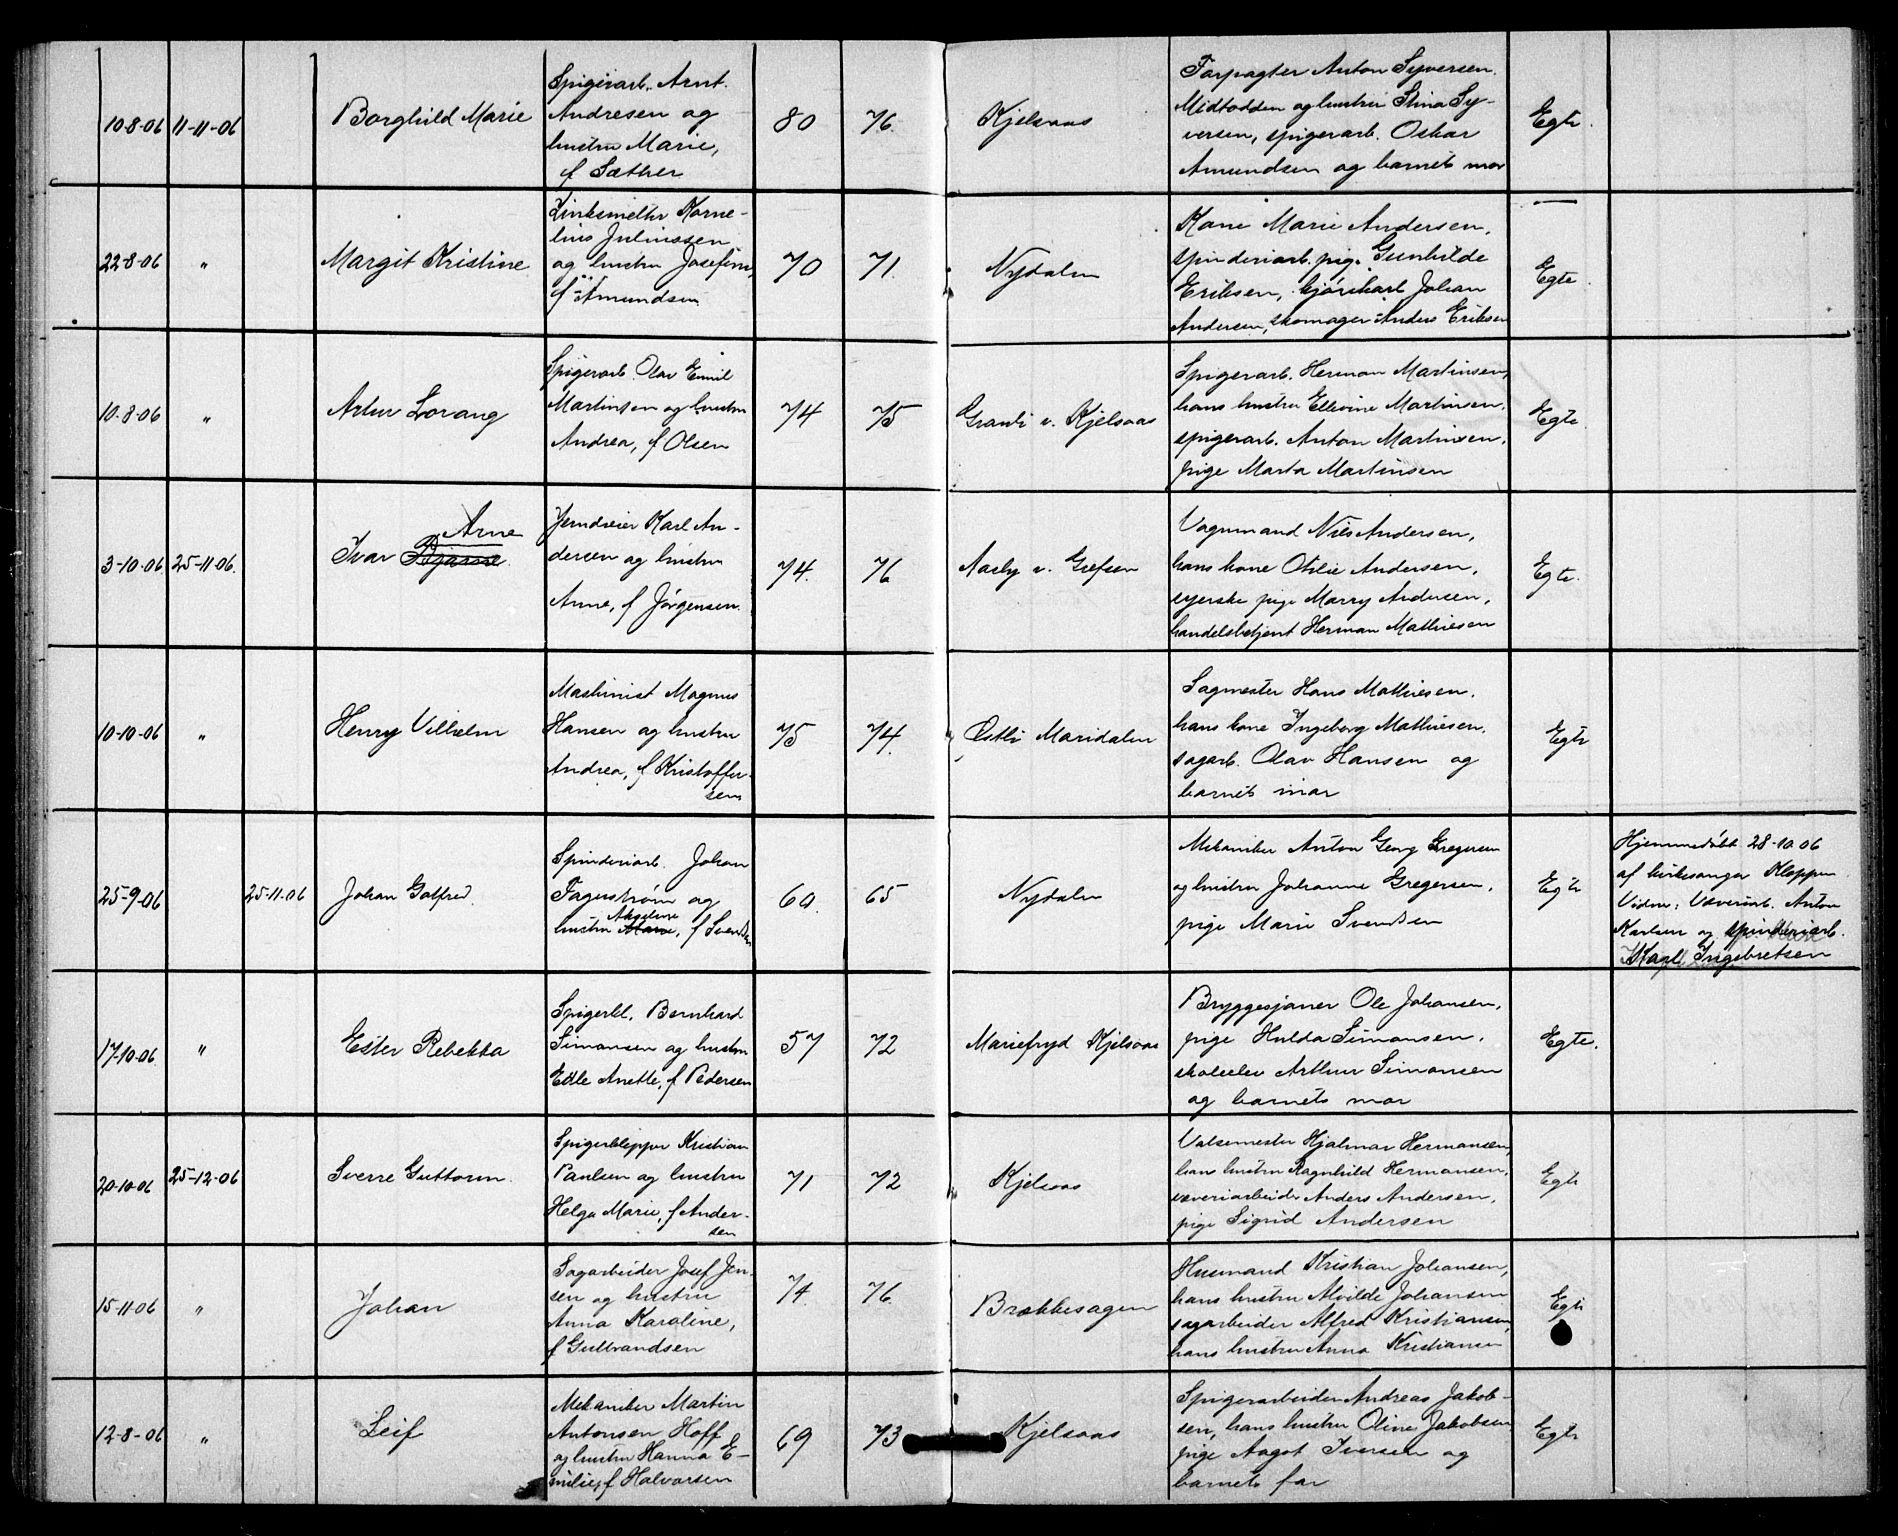 10-8-06 11-11-06 Borghild Marie
Spigerarb. Arnt
Andresen og
hustru Marie,
f Sæther
80 76. Kjelsaas
Forpagter Anton Syversen
Midtodden og hustru Stina Sy-
versen, spigerarb. Oskar
Amundsen og barnets mor
Egte
22-8-06 " Margit Kristine
Zinksmelter Korne-
lius Juliussen
og hustru Josefine,
f Amundsen
70 71. Nydalen
Kone Marie Andersen,
spinderiarb. pige Gunhilde
Eriksen, kjørekarl Johan
Andersen, skomager Anders Eriksen
Egte
10-8-06 " Artur Lorang
Spigerarb. Olav Emil
Martinsen og hustru
Andrea, f Olsen
74 75 Granli v. Kjelsaas
Spigerarb. Herman Martinsen,
hans hustru Ellevine Martinsen,
spigerarb. Anton Martinsen,
pige Marta Martinsen
Egte
3-10-06 25-11-06. Ivar Bjarne Arne
Jerndreier Karl An-
dersen og hustru
Anna, f Jørgensen.
74. 76 Aasly v. Grefsen
Vognmand Nils Andersen,
hans kone Otilie Andersen,
syerske pige Marry Andersen,
handelsbetjent Herman Mathiesen
Egte.
10-10-06 " Henry Vilhelm
Maskinist Magnus
Hansen og hustru
Andrea, f Kristoffer-
sen
75 74. Østli Maridalen
Sagmester Hans Mathiesen,
hans kone Ingeborg Mathiesen,
sagarb. Olav Hansen og
barnets mor
Egte
25-9-06 25-11-06 Johan Gotfred
Spinderiarb. Johan
Fagerstrøm og
Akseline
hustru Marie, f Svendsen
60. 65 Nydalen
Mekaniker Anton Georg Gregersen
og hustru Johanne Gregersen,
pige Marie Svendsen
Egte
Hjemmedøbt 28-10 06
af kirkesanger Kloppen.
Vidne: Væveriarb. Anton
Karlsen og spinderiarb.
Karl Ingebretsen
17-10-06 " Ester Rebekka
Spigerkl. Bernhard
Simonsen og hustru
Edle Anette, f Pedersen
57 72 Mariefryd Kjelsaas
Bryggesjauer Ole Johansen,
pige Hulda Simonsen,
skoleelev Arthur Simonsen
og barnets mor
Egte.
20-10-06 25-12-06 Sverre Guttorm
Spigerklipper Kristian
Paulsen og hustru
Helga Marie, f Ander-
sen
71 72 Kjelsaas
Valsemester Hjalmar Hermansen,
hans hustru Ragnhild Hermansen,
væveriarbeider Anders Andersen,
pige Sigrid Andersen
Egte
15-11-06 " Johan
Sagarbeider Josef Jen-
sen og hustru
Anna Karoline,
f Gulbrandsen
74. 76. Brækkesagen
Husmand Kristian Johansen,
hans hustru Alvilde Johansen
sagarbeider Alfred Kristiansen,
hans hustru Anna Kristiansen
Egte
12-8-06 " Leif
Mekaniker Martin
Antonsen Hoff
og hustru Hanna E-
milie, f Halvorsen
69 73 Kjelsaas
Spigerarbeider Andreas Jakob-
sen, hans hustru Oline Jakobsen
pige Aagot Iversen og
barnets far
Egte